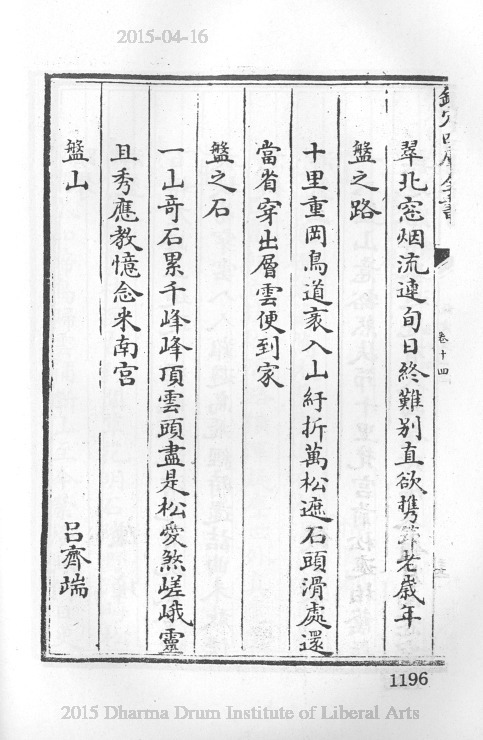 2015-04-16
欽定四庫全書
卷十四
翠北窓烟流連旬日終難别直欲携笻老歲年
盤之路
十里重岡鳥道袤入山紆折萬松遮石頭滑處還
當省穿出層雲便到家
盤之石
一山奇石累千峰峰頂雲頭盡是松愛煞嵯峨靈
且秀應教憶念米南宫
盤山 吕齊端
1196
2015 Dharma Drum Institute of Liberal Arts